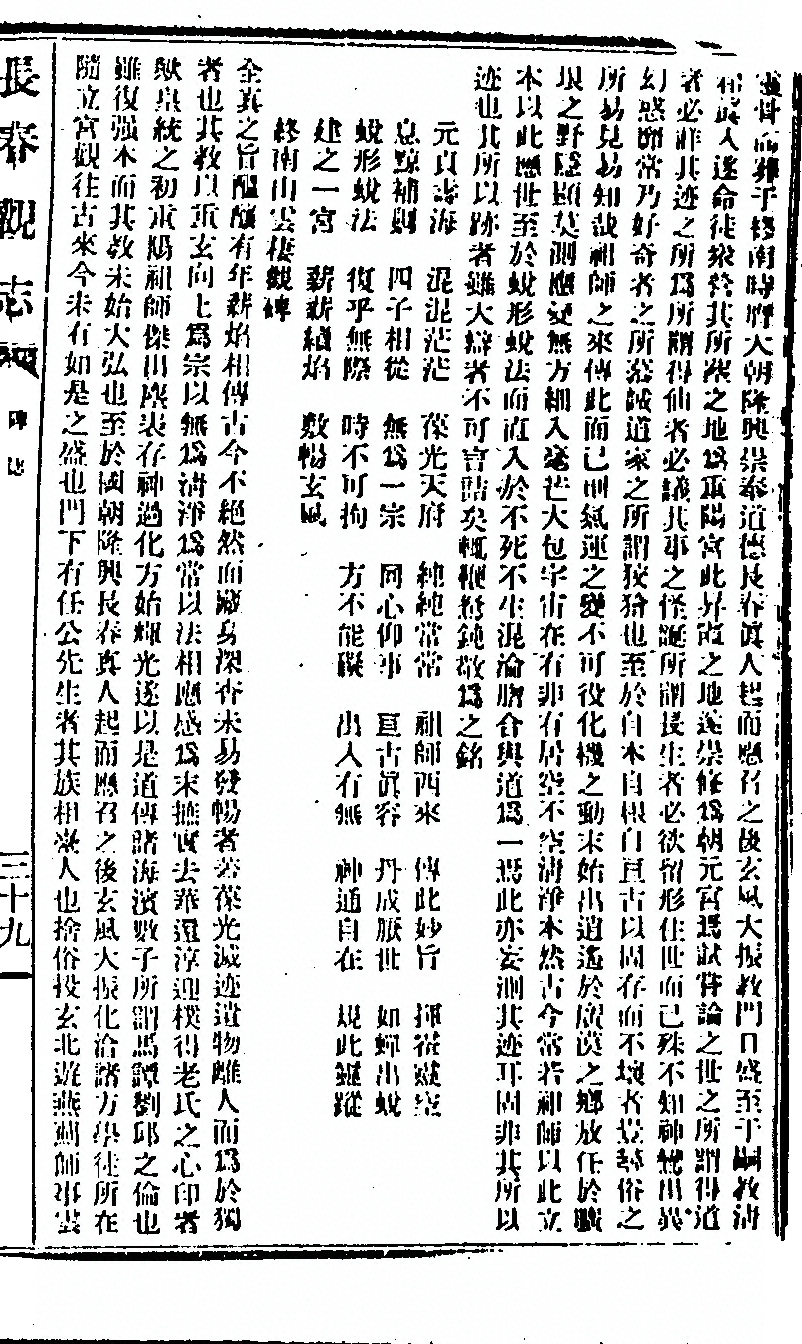 靈骨而葬于終南時膺大朝隆興崇奉道德長春眞人起而應召之後玄風大振教門日盛至于嗣教清
和眞人遂命徒衆營其所葬之地爲重陽宮此昇霞之地遂崇修爲朝元宮焉試嘗論之世之所謂得道
者必非其迹之所爲所謂得仙者必議其事之怪誕所謂長生者必欲留形住世而已殊不知神變出異
幻惑師常乃好奇者之所爲誠道家之所謂狡獪也至於自本自根自亘古以固存而不壞者豈尋俗之
所易見易知哉祖師之來傳此而已則氣運之變不可役化機之動未始出逍遙於廣漠之鄉放任於曠
垠之野隱顯莫測應變無方細入毫芒大包宇宙在有非有居空不空清淨本然古今常若祖師以此立
本以此應世至於蛻形蛻法而直入於不死不生混淪脗合與道爲一焉此亦妄測其迹耳固非其所以
迹也其所以跡者雖大辯者不可言詰矣輒鞭駑鈍敬爲之銘
元貞壽海 混混茫茫 葆光天府 純純常常 祖師西來 傳此妙旨 揮斥靈空
息黥補劓 四子相從 無爲一宗 同心仰事 亘古眞容 丹成厭世 如蟬出蛻
蛻形蛻法 復乎無際 時不可拘 方不能礙 出入有無 神通自在 規此靈蹤
建之一宮 薪薪續焰 敷暢玄風
終南山雲棲觀碑
全真之旨醞釀有年薪焰相傳古今不絕然而藏身深杳未易發暢者蓋葆光滅迹遺物離人而爲於獨
者也其教以重玄向上爲宗以無爲清淨爲常以法相應感爲末摭實去華還淳迎樸得老氏之心印者
歟皇統之初重陽祖師傑出塵表存神過化方始輝光遂以是道傳諸海濱數子所謂馬譚劉邱之倫也
雖復强本而其教未始大弘也至於國朝隆興長春真人起而應召之後玄風大振化洽諸方學徒所在
隨立宮觀往古來今未有如是之盛也門下有任公先生者其族相臺人也捨俗投玄北遊燕薊師事雲
長春觀志 碑誌 三十九